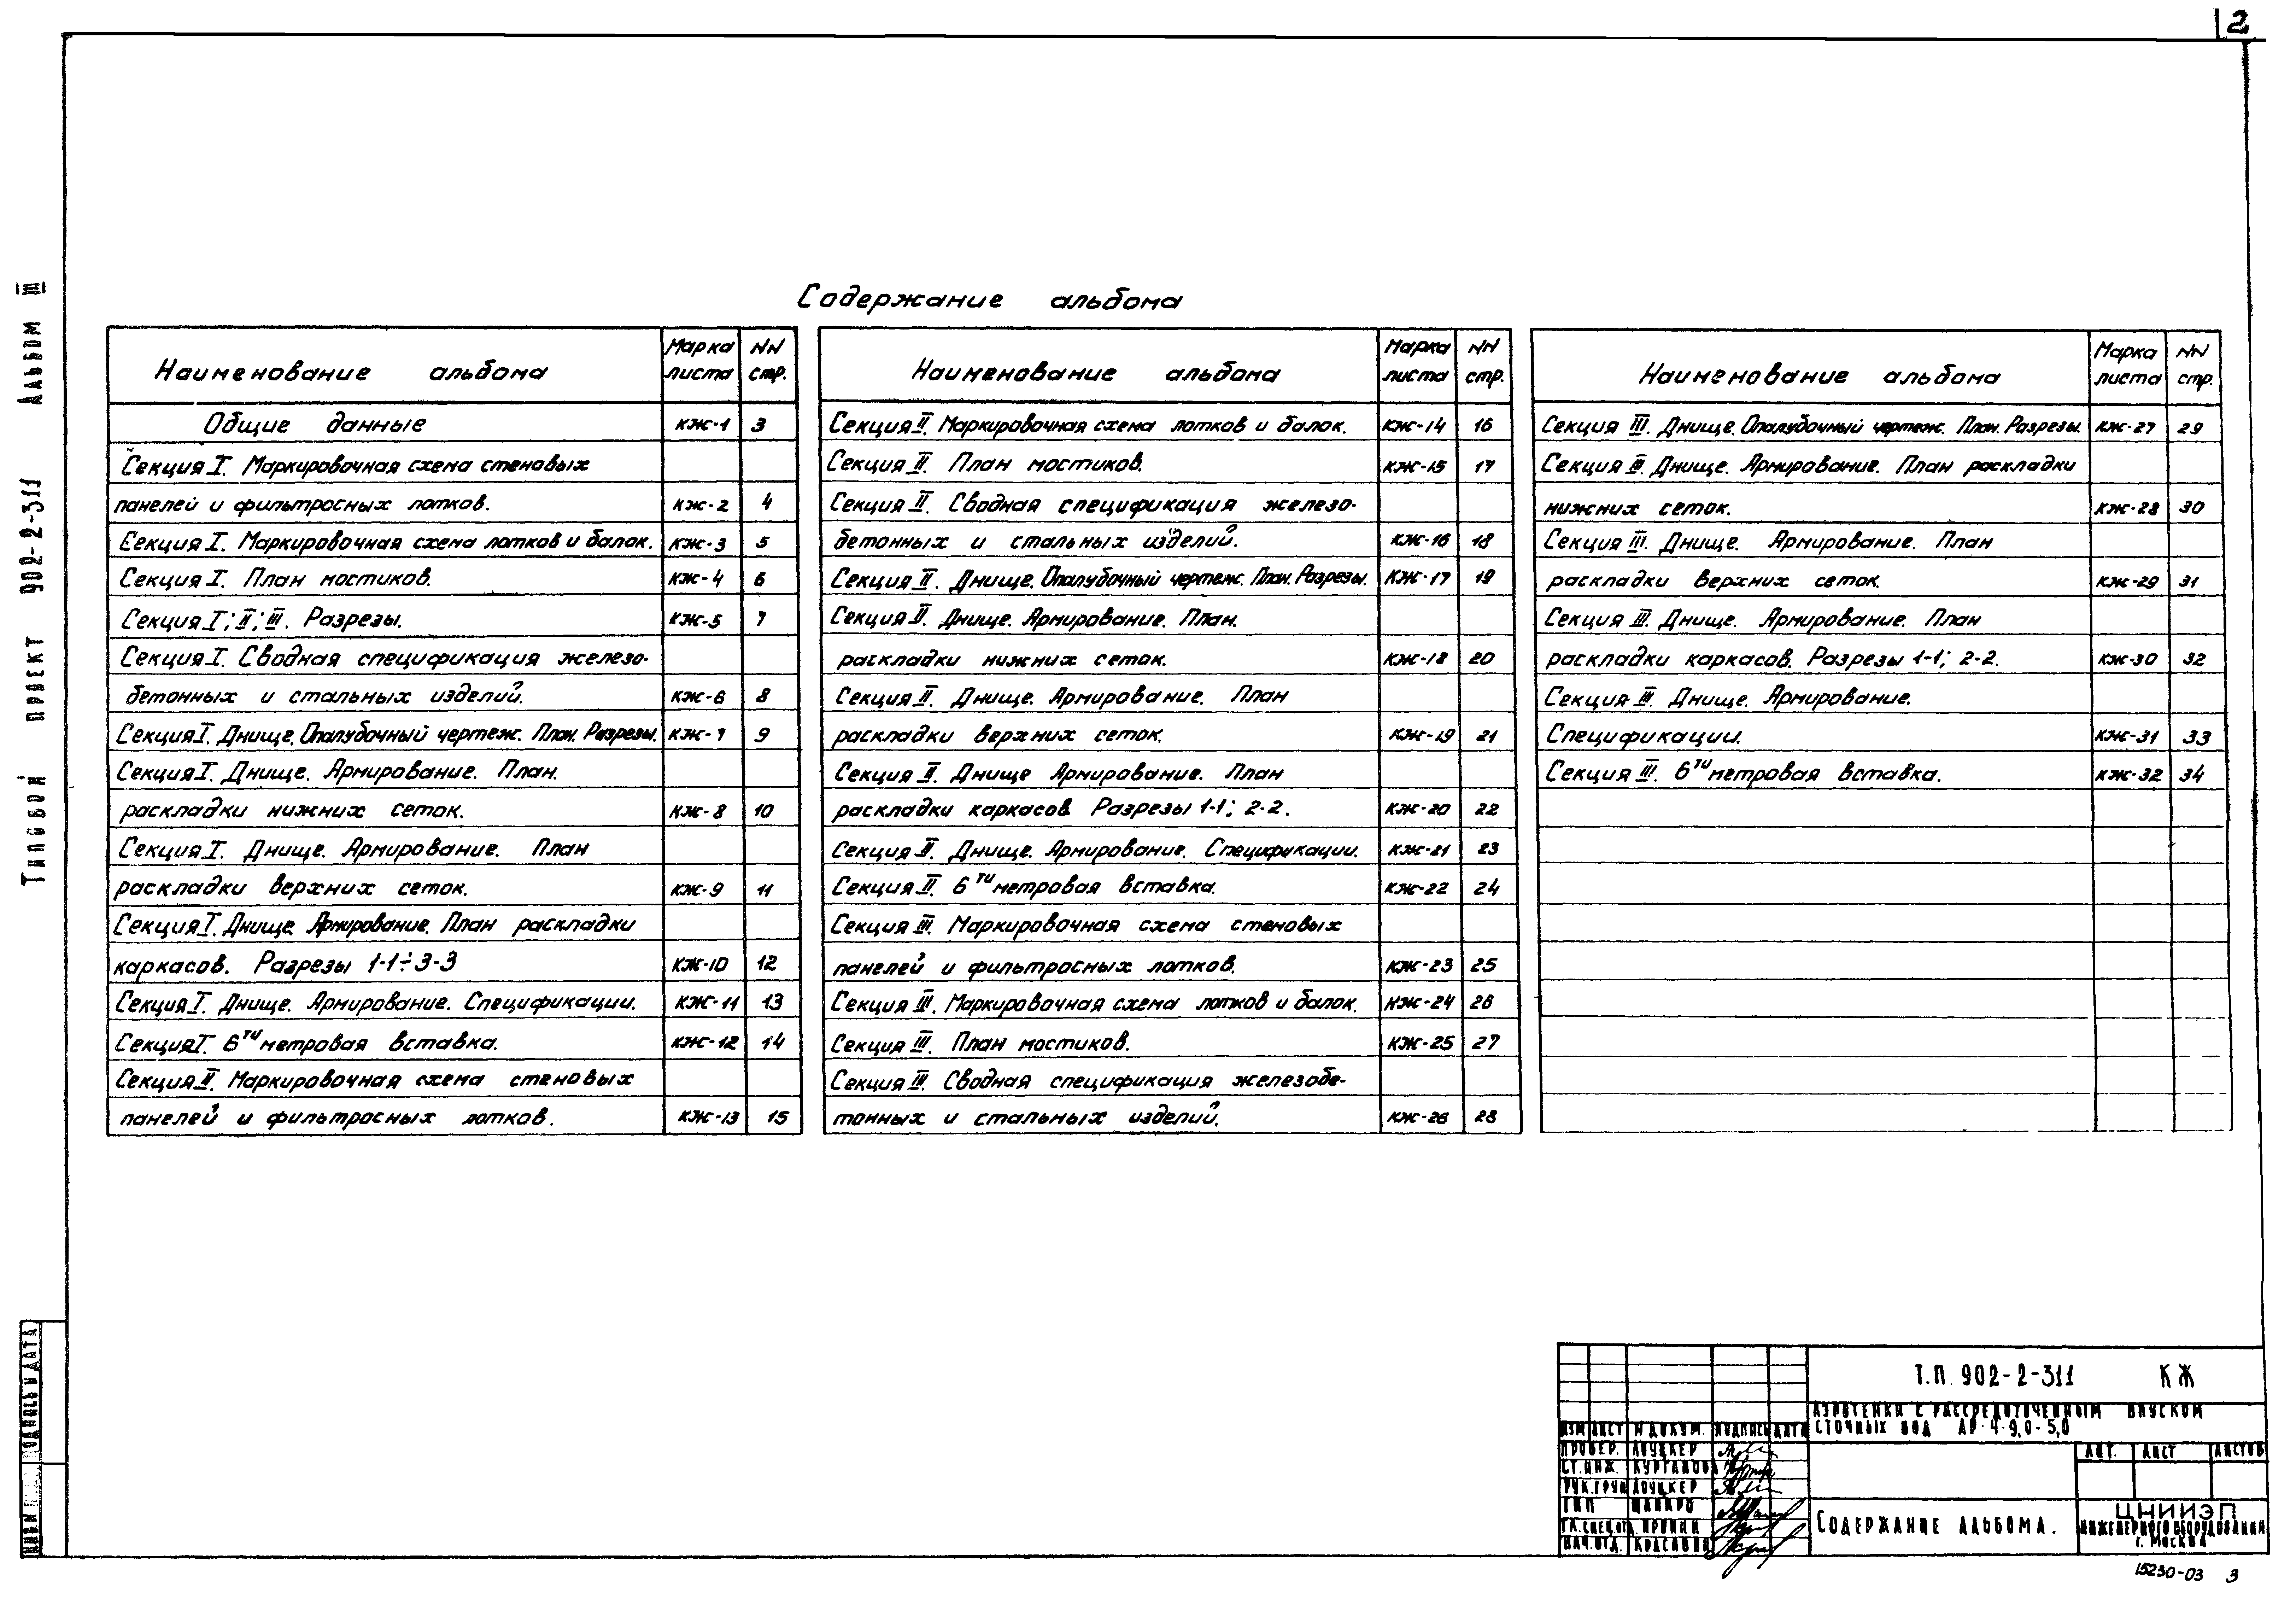 2
Типовой проект 902-2-311 Альбом III
Содержание альбома
Наименование альбома Марка листа NN стр.
Общие данные КЖ-1 3
Секция I. Маркировочная схема стеновых
панелей и фильтросных лотков. КЖ-2 4
Секция I. Маркировочная схема лотков и балок. КЖ-3 5
Секция I. План мостиков. КЖ-4 6
Секция I; II; III. Разрезы. КЖ-5 7
Секция I. Сводная спецификация железо-
бетонных и стальных изделий. КЖ-6 8
Секция I. Днище. Опалубочный чертеж. План. Разрезы. КЖ-7 9
Секция I. Днище. Армирование. План.
раскладки нижних сеток. КЖ-8 10
Секция I. Днище. Армирование. План
раскладки верхних сеток. КЖ-9 11
Секция I. Днище Армирование. План раскладки
каркасов. Разрезы 1-1÷3-3 КЖ-10 12
Секция I. Днище. Армирование. Спецификации. КЖ-11 13
Секция I. 6ти метровая вставка. КЖ-12 14
Секция II. Маркировочная схема стеновых
панелей и фильтросных лотков. КЖ-13 15
Наименование альбома Марка листа NN стр.
Секция II. Маркировочная схема лотков и балок. КЖ-14 16
Секция II. План мостиков. КЖ-15 17
Секция II. Сводная спецификация железо-
бетонных и стальных изделий. КЖ-16 18
Секция II. Днище. Опалубочный чертеж. План. Разрезы. КЖ-17 19
Секция II. Днище. Армирование. План.
раскладки нижних сеток. КЖ-18 20
Секция II. Днище. Армирование. План
раскладки верхних сеток. КЖ-19 21
Секция II. Днище Армирование. План
раскладки каркасов Разрезы 1-1; 2-2. КЖ-20 22
Секция II. Днище. Армирование. Спецификации. КЖ-21 23
Секция II. 6ти метровая вставка. КЖ-22 24
Секция III. Маркировочная схема стеновых
панелей и фильтросных лотков. КЖ-23 25
Секция III. Маркировочная схема лотков и балок. КЖ-24 26
Секция III. План мостиков. КЖ-25 27
Секция III. Сводная спецификация железобе-
тонных и стальных изделий. КЖ-26 28
Наименование альбома Марка листа NN стр.
Секция III. Днище. Опалубочный чертеж. План. Разрезы. КЖ-27 29
Секция III. Днище. Армирование. План раскладки
нижних сеток. КЖ-28 30
Секция III. Днище. Армирование. План
раскладки верхних сеток. КЖ-29 31
Секция III. Днище. Армирование. План
раскладки каркасов. Разрезы 1-1; 2-2. КЖ-30 32
Секция III. Днище. Армирование.
Спецификации. КЖ-31 33
Секция III. 6ти метровая вставка. КЖ-32 34
Подпись и дата
Т.П. 902-2-311 КЖ
Аэротенки с рассредоточенным впуском
сточных вод АР-4-9,0-5,0
Изм Лист N докум. Подпись Дата
Провер. Лоуцкер
Ст.инж. Курганова
Рук.груп Лоуцкер
ГИП Шапиро
Гл.спец.отд. Пронин
Нач.отд. Красавин
Лит. Лист Листов
Содержание альбома.
ЦНИИЭП
инженерного оборудования
г. Москва
15230-03 3